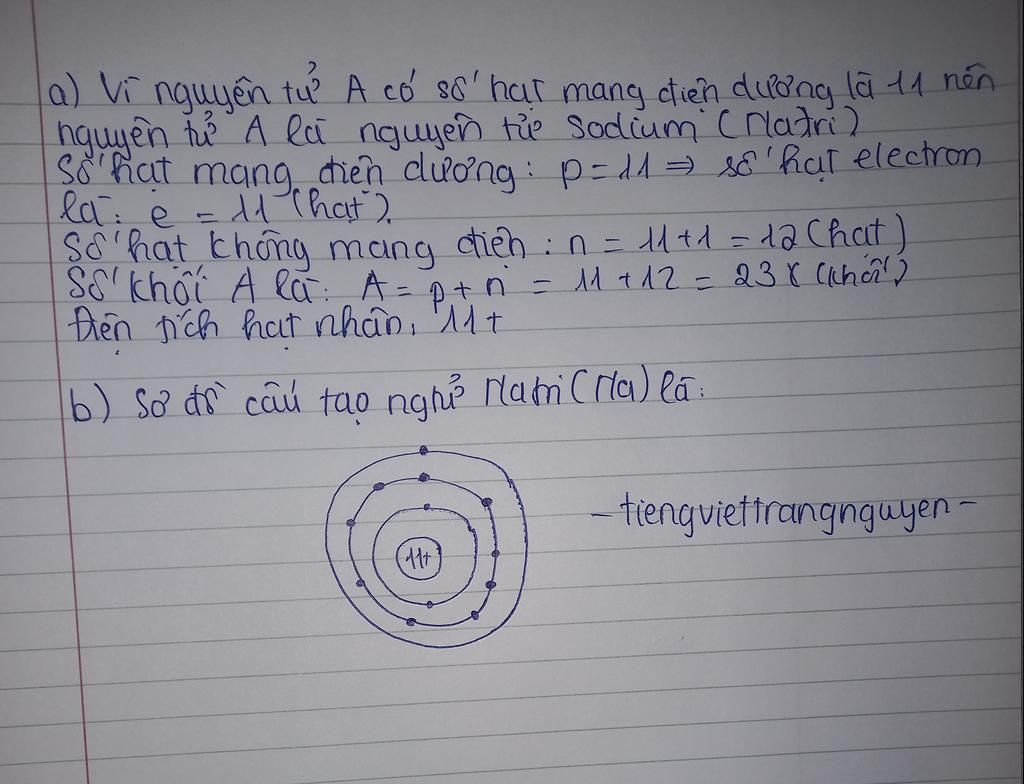 a) Vì nguyên tử A có số hạt mang điện dương là 11 nên
nguyên tử A là nguyên tử Sodium (Natri)
Số hạt mang điện dương: p = 11 ⇒ số hạt electron
là: e = 11 (hạt).
Số hạt không mang điện: n = 11 + 1 = 12 (hạt)
Số khối A là: A = p + n = 11 + 12 = 23 (khối)
Điện tích hạt nhân: 11+
b) Sơ đồ cấu tạo ngtử Natri (Na) là:
11+
- tiengviettrangnguyen -